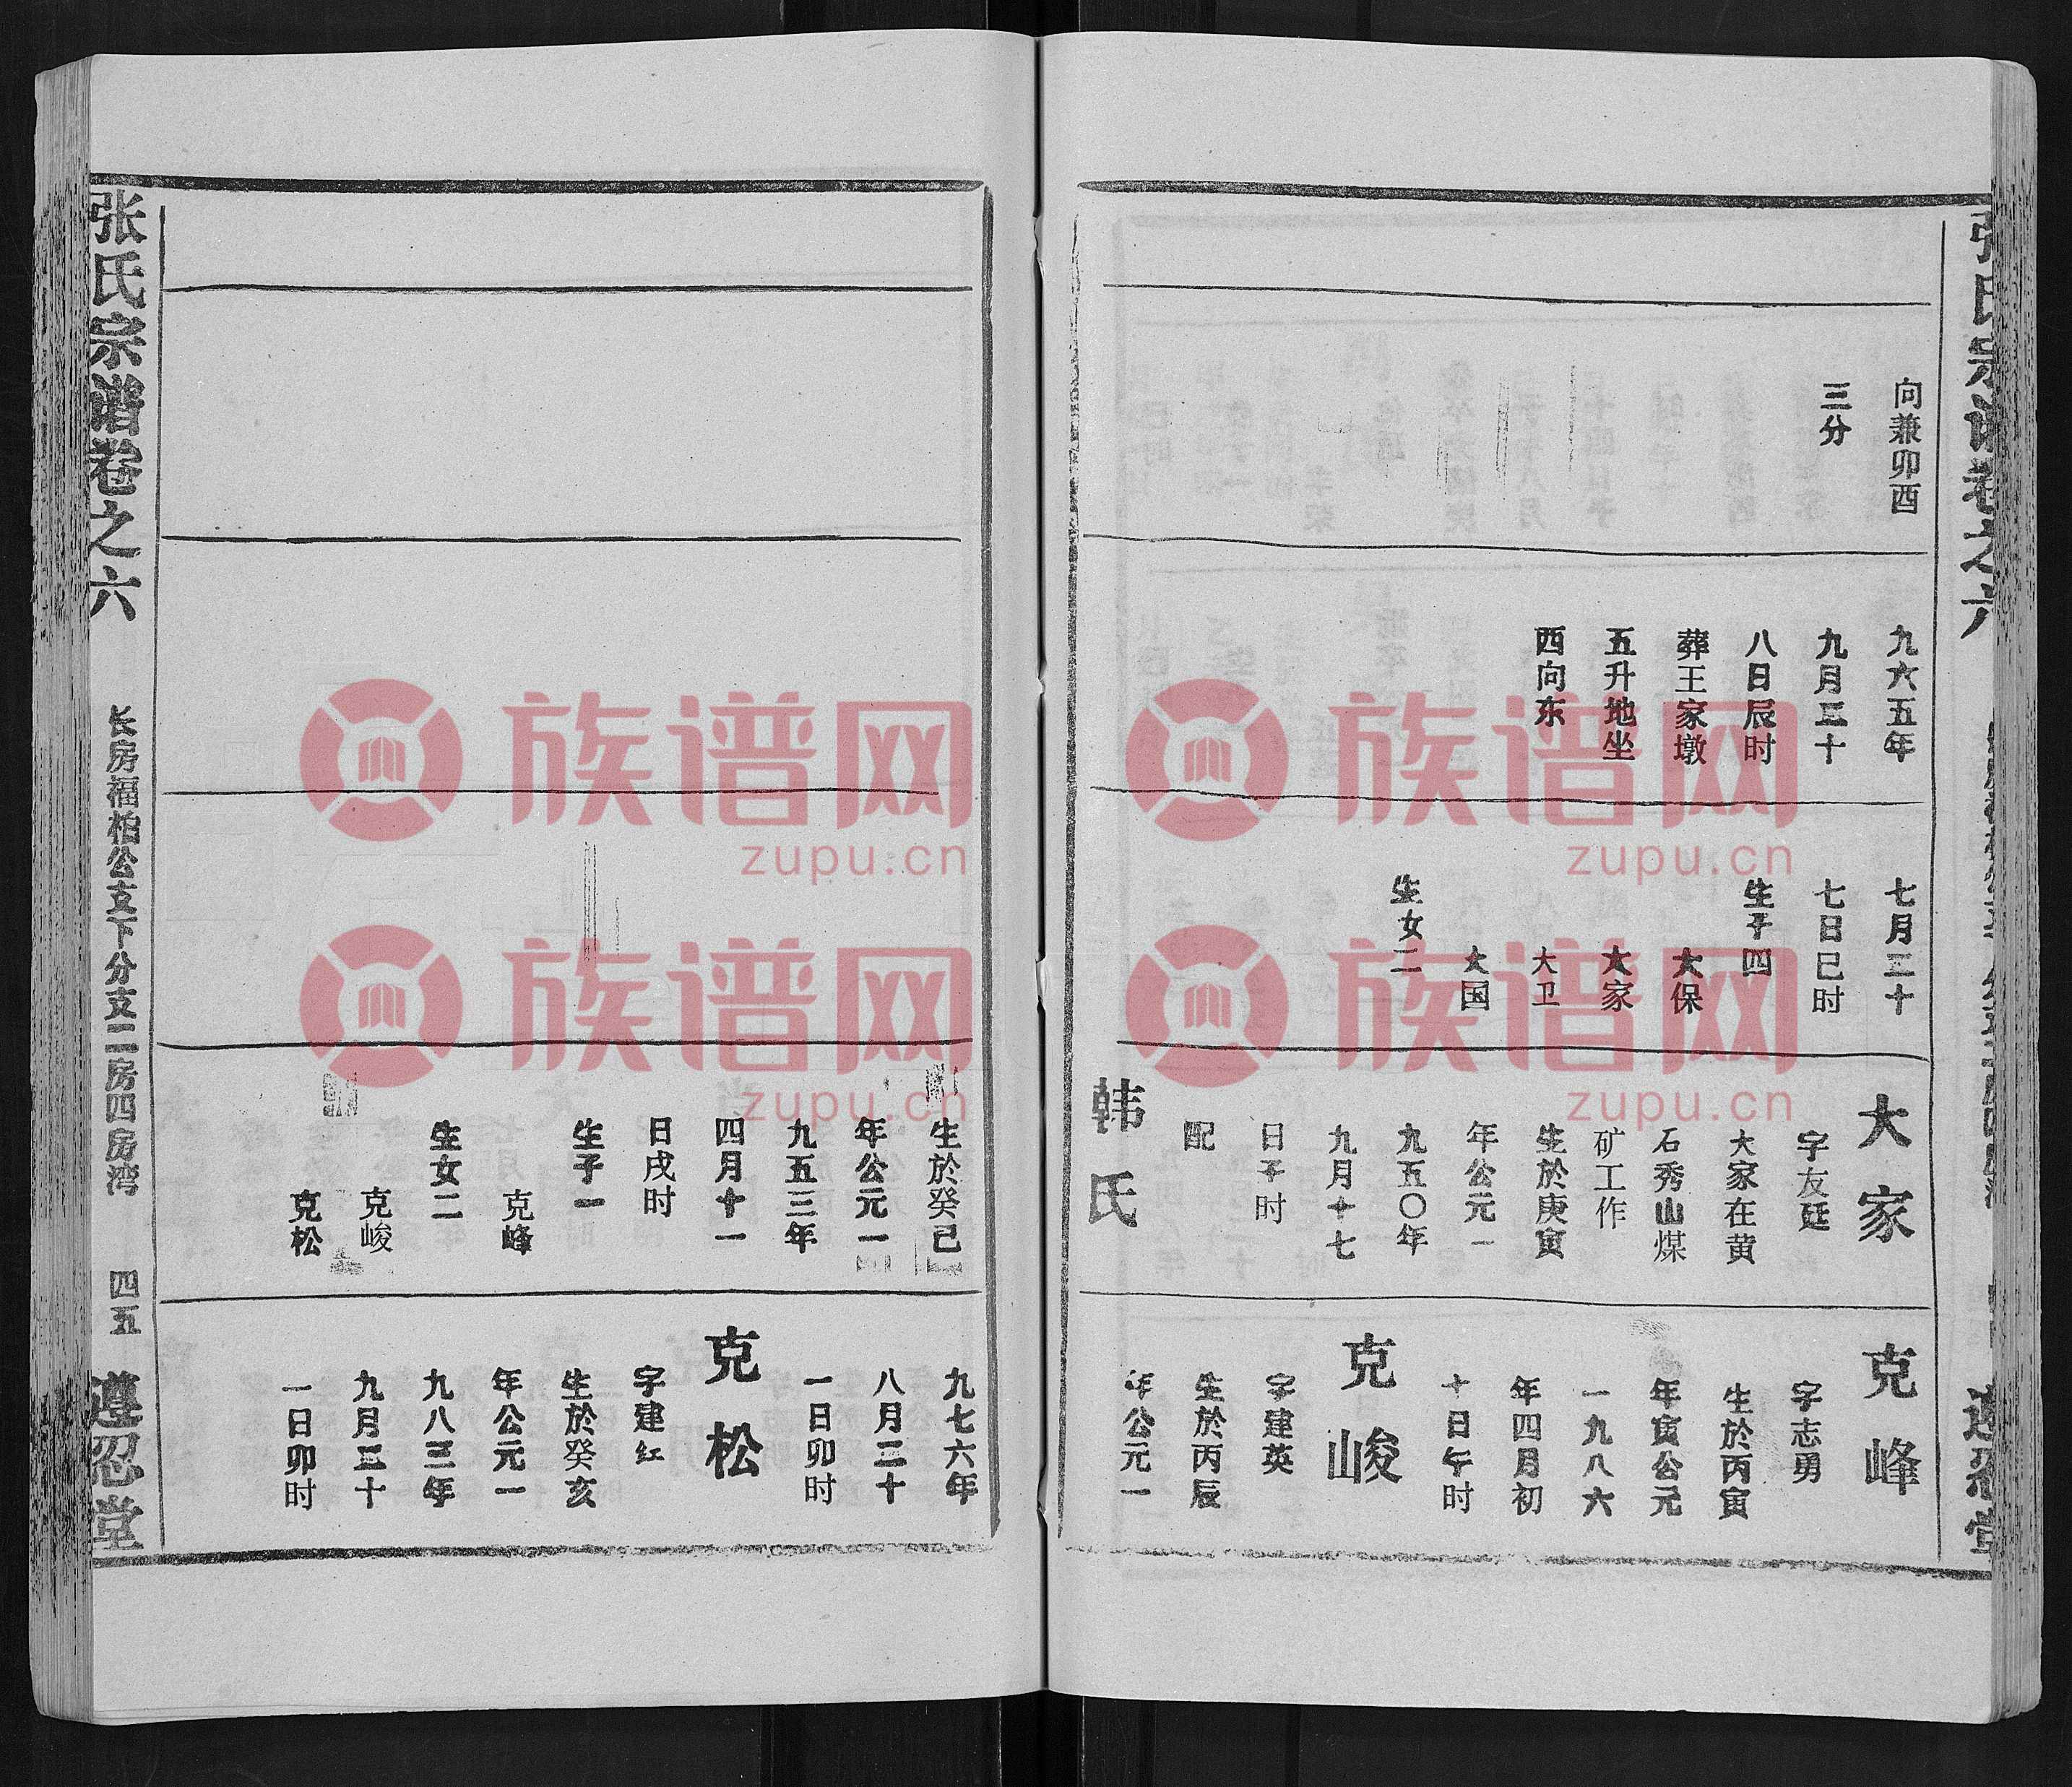 向兼卯酉
三分
九六五年
九月三十
八日辰时
葬王家墩
五升地坐
西向东
七月二十
七日巳时
生子四
大保
大家
大卫
大国
生女二
大家
字友廷
大家在黄
石秀山煤
矿工作
生於庚寅
年公元一
九五〇年
九月十七
日子时
配
韩氏
克峰
字志勇
生於丙寅
年寅公元
一九八六
年四月初
十日午时
克峻
字建英
生於丙辰
年公元一
生於癸巳
年公元一
九五三年
四月十一
日戌时
生子一
克峰
生女二
克峻
克松
九七六年
八月二十
一日卯时
克松
字建红
生於癸亥
年公元一
九八三年
九月三十
一日卯时
张氏宗谱卷之六
长房福柏公支下分支二房四房湾
四五
遵忍堂
族谱网
zupu.cn
族谱网
zupu.cn
族谱网
zupu.cn
族谱网
zupu.cn